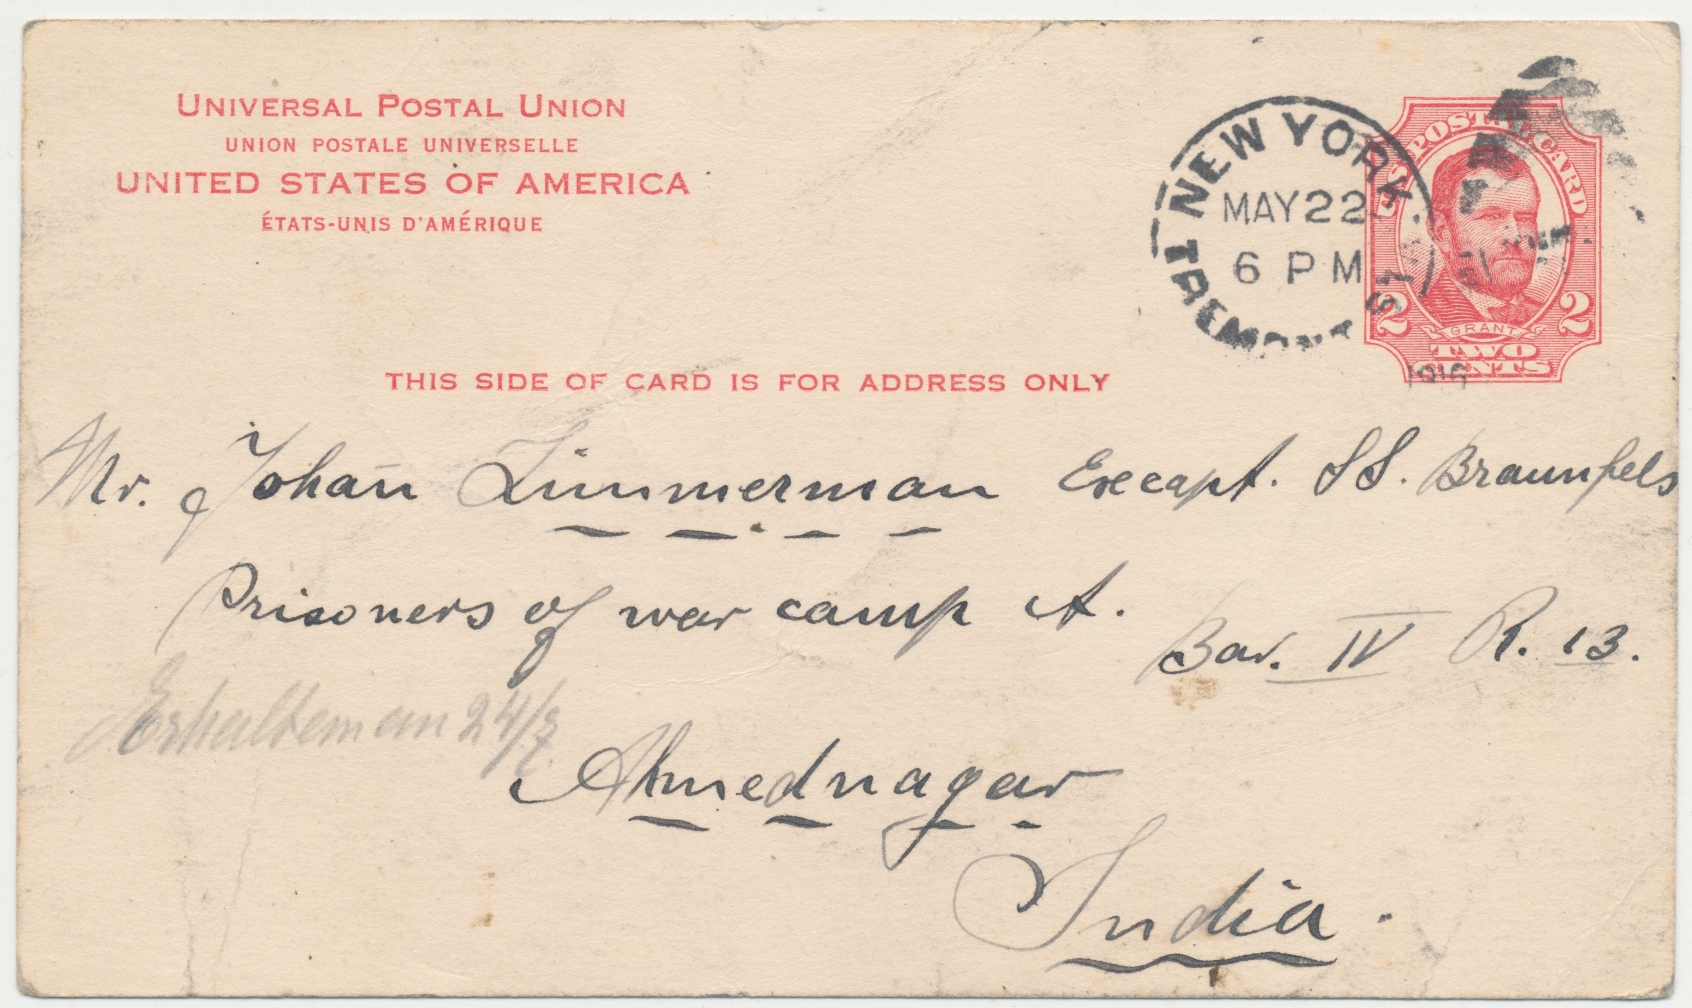 UNIVERSAL POSTAL UNION
UNION POSTALE UNIVERSELLE
UNITED STATES OF AMERICA
ÉTATS-UNIS D'AMÉRIQUE
NEW YORK.
MAY 22
6 PM
TREMONT STA.
1916
U.S. POSTAL CARD
2 GRANT 2
TWO
CENTS
THIS SIDE OF CARD IS FOR ADDRESS ONLY
Mr. Johan̄ Zimmerman Excapt. SS. Braunfels
Prisoners of war camp A.
Bar. IV R. 13.
Erhalten am 24/7.
Ahmednagar
India.